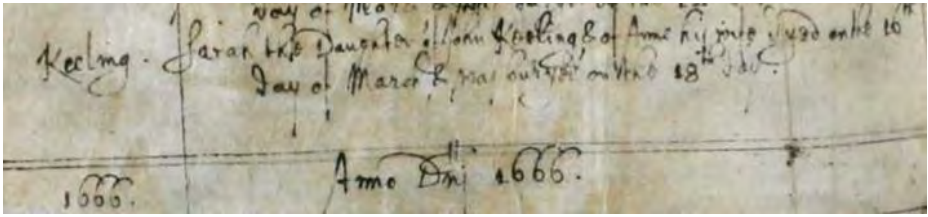 day of March
Keeling. Sarah the Daughter of John Keeling & of Anne his wife dyed on the 16th
day of March & was buryed on the 18th day.
Anno Dni 1666.
1666.